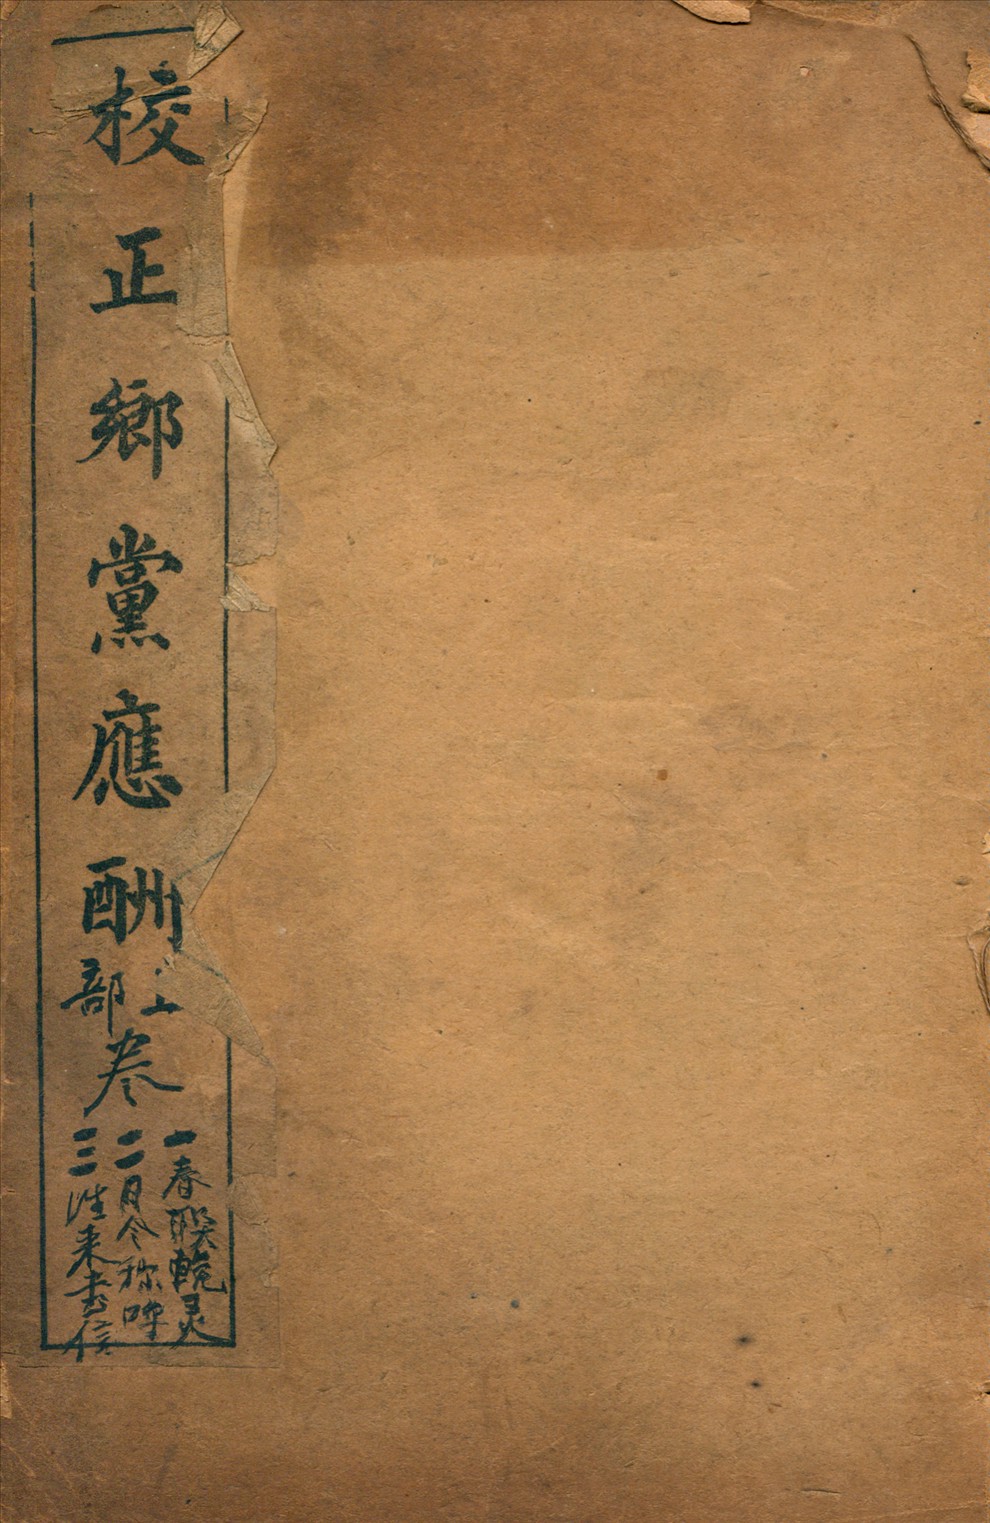 校正鄉黨應酬
上
部
卷
一春聯輓灵
二月令称呼
三往来書信